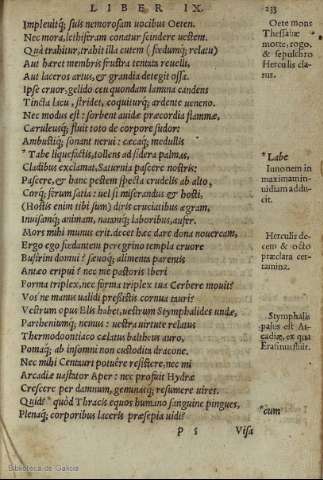 LIBER IX. 233
Impleuitq́; suis nemorosam uocibus Oeten.
Nec mora, lethiferam conatur scindere uestem.
Quà trahitur, trahit illa cutem (fœdumq́; relatu)
Aut hæret membris frustra tentata reuelli,
Aut laceros artus, & grandia detegit ossa.
Ipse cruor, gelido ceu quondam lamina candens
Tincta lacu, stridet, coquiturq́; ardente ueneno.
Nec modus est: sorbent auidæ præcordia flammæ,
Cæruleusq́; fluit toto de corpore sudor:
Ambustiq́; sonant nerui: cæcaq́; medullis
*Tabe liquefactis, tollens ad sidera palmas,
Cladibus exclamat, Saturnia pascere nostris:
Pascere, & hanc pestem specta crudelis ab alto,
Corq́; ferum satia: uel si miserandus & hosti,
(Hostis enim tibi sum) diris cruciatibus ægram,
Inuisamq́; animam, natamq́; laboribus, aufer.
Mors mihi munus erit. decet hæc dare dona nouercam.
Ergo ego fœdantem peregrino templa cruore
Busirim domui? sæuoq́; alimenta parentis
Antæo eripui? nec me pastoris Iberi
Forma triplex, nec forma triplex tua Cerbere mouit?
Vos'ne manus ualidi pressistis cornua tauri?
Vestrum opus Elis habet, uestrum Stymphalides undæ,
Partheniumq́; nemus: uestra uirtute relatus
Thermodoontiaco cælatus baltheus auro,
Pomaq́; ab insomni non custodita dracone.
Nec mihi Centauri potuêre resistere, nec mi
Arcadiæ uastator Aper: nec profuit Hydræ
Crescere per damnum, geminasq́; resumere uires.
Quid? *quòd Thracis equos humano sanguine pingues,
Plenaq́; corporibus laceris præsepia uidi?
P 5 Visa
Oete mons
Thessaliæ
morte, rogo,
& sepulchro
Herculis cla-
rus.
*Labe
Iunonem in
maximam in-
uidiam addu-
cit.
Herculis de-
cem & octo
præclara cer-
tamina.
Stymphalis
palus est Ar-
cadiæ, ex qua
Erasinus fluit.
*cum
Biblioteca de Galicia